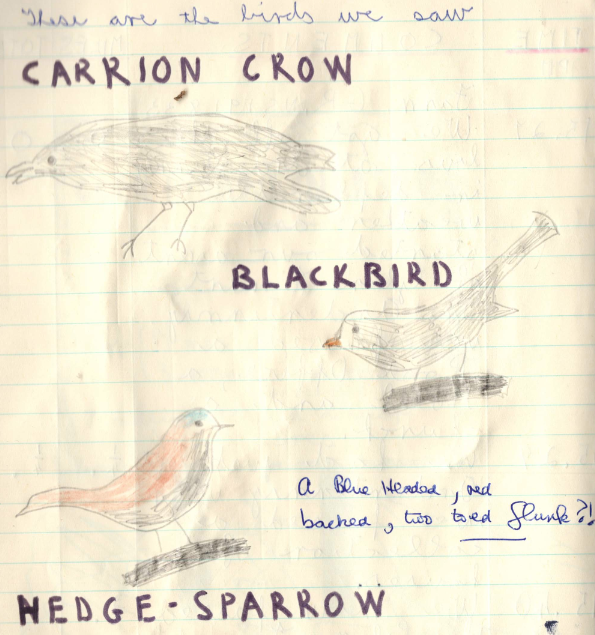 These are the birds we saw
CARRION CROW
BLACKBIRD
A Blue Headed, red
backed, two toed Flunk?!
HEDGE-SPARROW